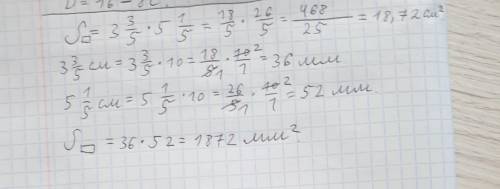 D = 16 - 8C.
S□ = 3 3/5 · 5 1/5 = 18/5 · 26/5 = 468/25 = 18,72 см²
3 3/5 см = 3 3/5 · 10 = 18/5 1 · 10 2/1 = 36 мм
5 1/5 см = 5 1/5 · 10 = 26/5 1 · 10 2/1 = 52 мм
S□ = 36 · 52 = 1872 мм²